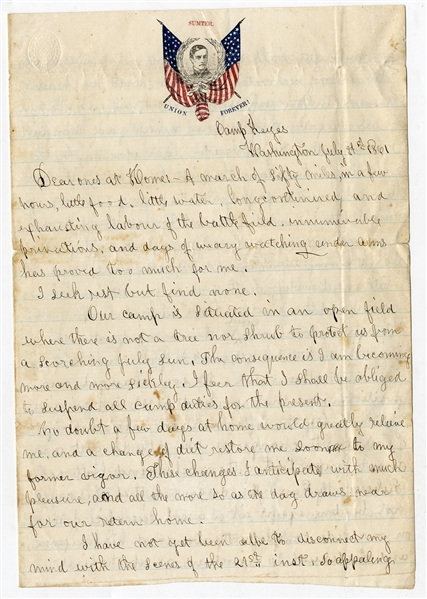 SUMTER.
UNION FOREVER!
Camp Keyes
Washington July 1861
Dear ones at Home - A march of fifty miles, in a few
hours, little food, little water, long continued and
exhausting labour of the battle field, innumerable
privations, and days of weary watching under arms
has proved too much for me.
I seek rest but find none.
Our camp is situated in an open field
where there is not a tree nor shrub to protect us from
a scorching July sun. The consequence is I am becoming
more and more sickly. I feer that I shall be obliged
to suspend all camp duties for the present.
No doubt a few days at home would greatly relieve
me, and a change of diet restore me soon to my
former vigor. These changes I anticipate with much
pleasure, and all the more so as the day draws near
for our return home.
I have not yet been able to disconnect my
mind with the scenes of the 21st inst. So appaling